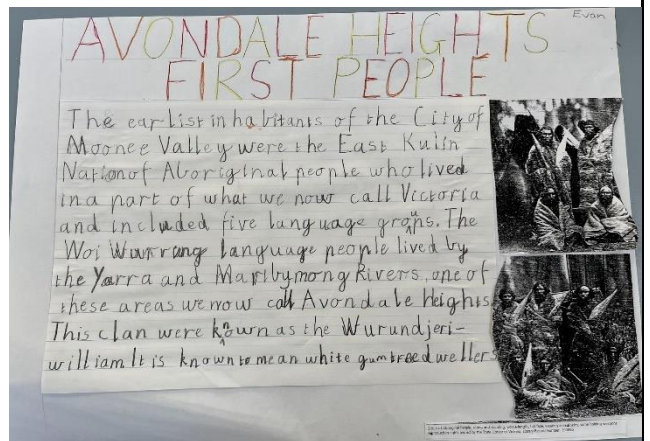 Evan
AVONDALE HEIGHTS
FIRST PEOPLE
The earlist inhabitants of the City of
Moonee Valley were the East Kulin
Nation of Aboriginal people who lived
in a part of what we now call Victoria
and included five language groups. The
Woi Wurrung language people lived by
the Yarra and Maribyrnong Rivers, one of
these areas we now call Avondale Heights
This clan were known as the Wurundjeri-
william It is known to mean white gum tree dwellers